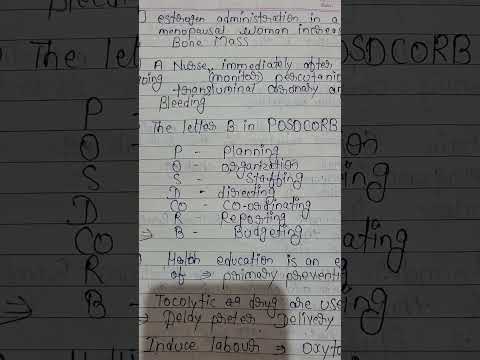 estrogen administration in a
menopausal woman increas
Bone Mass
A Nurse immediately after
oing (monitor) percutanin
transluminal coronary an
Bleeding
The letter B in POSDCORB
P - Planning
O - organization
S - Staffing
D - directing
CO - CO-ordinating
R - Reporting
→ B - Budgeting
Helth education is an e
of → primary preventi
Tocolytic drug are use
→ Deldy preter Delivery
Induce labour → oxyto